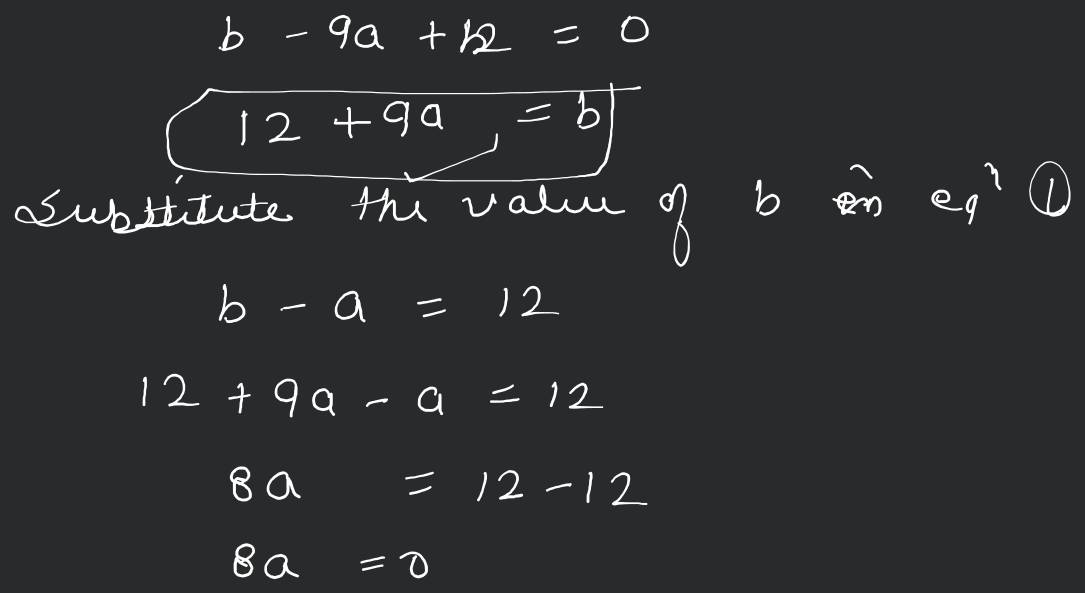 b - 9a + 12 = 0
12 + 9a = b
Substitute the value of b in eqⁿ ①
b - a = 12
12 + 9a - a = 12
8a = 12 - 12
8a = 0